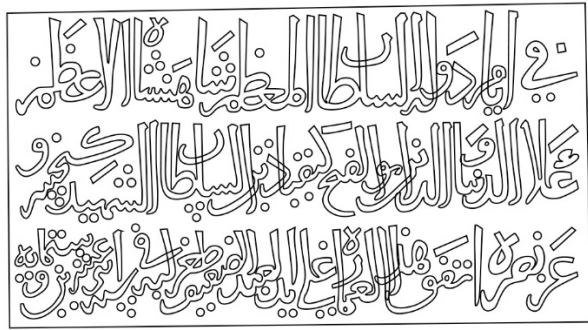 في ايام دولة السلطان المعظم شاهنشاه الاعظم
علا الدنيا و الدين ابو الفتح كيقباد بن السلطان الشهيد كيخسرو
عز نصره اتفق هذه العمارة على يد العبد الضعيف